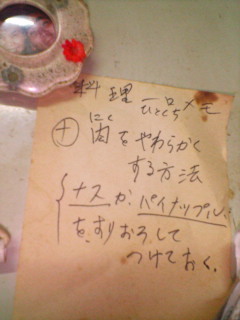 料理 一口メモ
ひとくち
⊕ 肉をやわらかく
にく
する方法
ナスか、パイナップル
をすりおろして
つけておく。